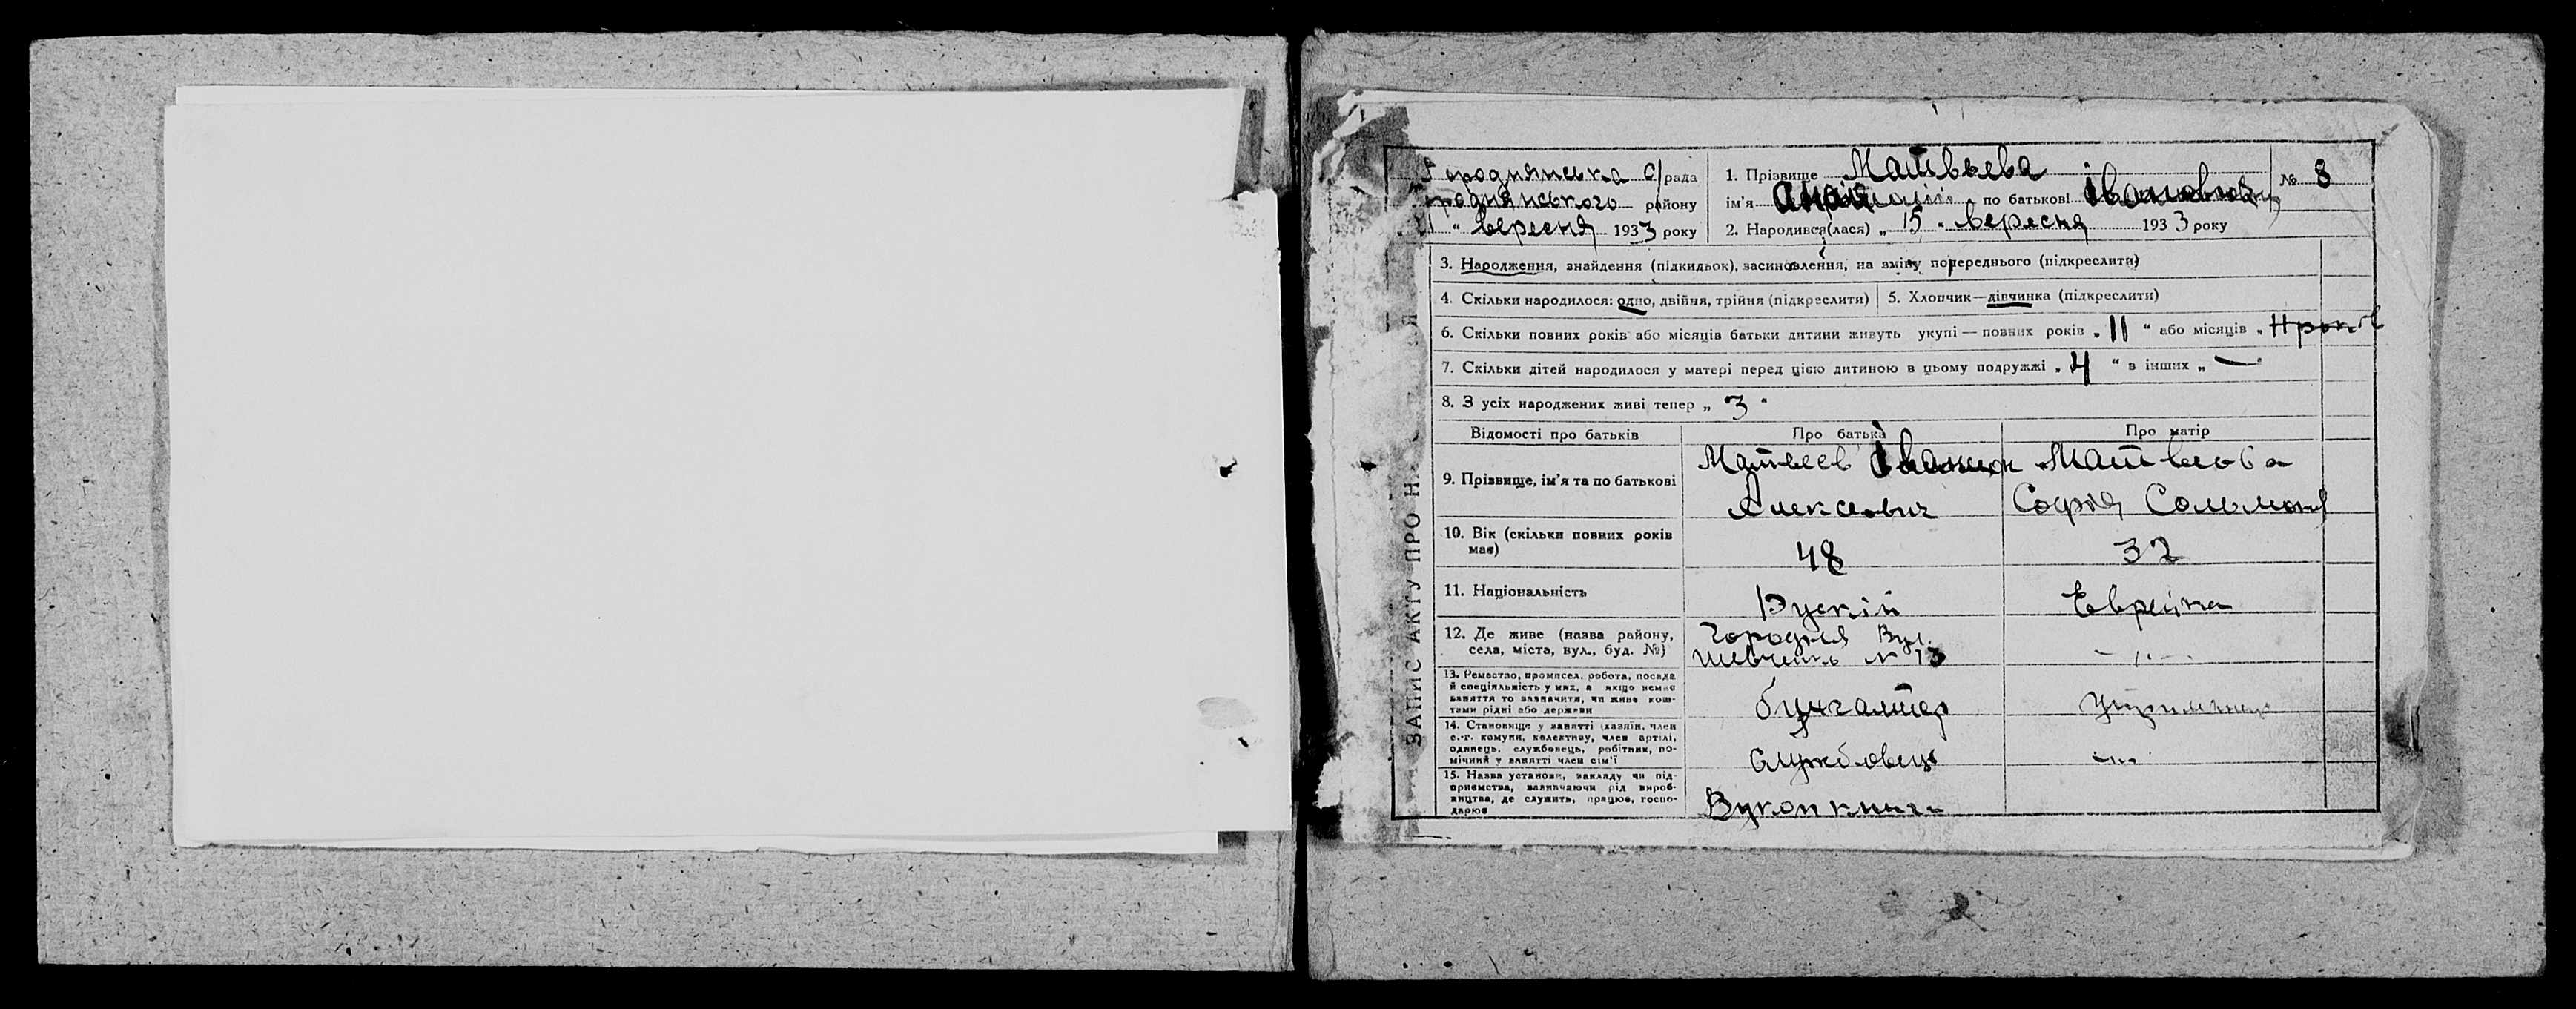 Городнянська с/рада
Городнянського району
21 " вересня 1933 року
1. Прізвище Матвьева № 8
ім'я по батькові Івановна
2. Народився(лася) „ 15 " вересня 1933 року
ЗАПИС АКТУ ПРО Н
3. Народження, знайдення (підкидьок), засиновлення, на зміну попереднього (підкреслити)
4. Скільки народилося: одно, двійня, трійня (підкреслити) 5. Хлопчик—дівчинка (підкреслити)
6. Скільки повних років або місяців батьки дитини живуть укупі — повних років „ 11 " або місяців „
7. Скільки дітей народилося у матері перед цією дитиною в цьому подружжі „ 4 " в інших „ — "
8. З усіх народжених живі тепер „ 3 "
Відомості про батьків Про батька Про матір
9. Прізвище, ім'я та по батькові Матвеев Алексеевич Матвеева Софія
10. Вік (скільки повних років має) 48 32
11. Національність Рускій Еврейка
12. Де живе (назва району, села, міста, вул., буд. №) Городня Вул. Шевченк № 13 —„—
13. Ремество, промисел, робота, посада й спеціяльність у них, а якщо немає заняття то зазначити, чи живе коштами рідні або держави бухгалтер
14. Становище у занятті (хазяїн, член с.-г. комуни, колективу, член артілі, одинець, службовець, робітник, помічний у занятті член сім'ї службовець —„—
15. Назва установи, закладу чи підприємства, зазначаючи рід виробництва, де служить, працює, господарює Вукопкнига